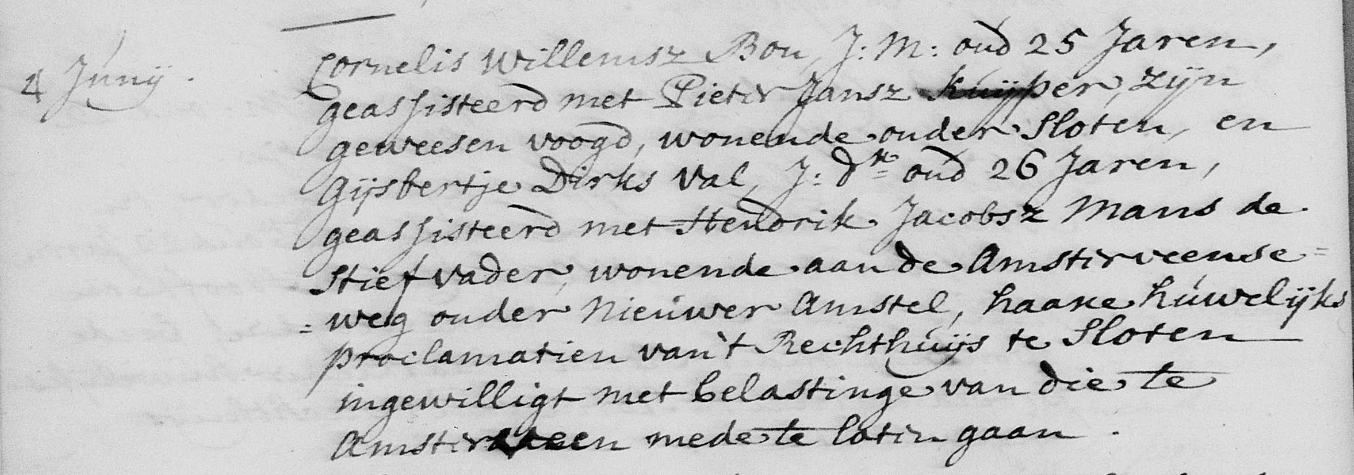 4 Junij. Cornelis Willemsz Bou, J: M: oud 25 Jaren,
geassisteerd met Pieter Jansz Kuijper, zijn
geweesen voogd, wonende onder Sloten, en
Gijsbertje Dirks Val, J: dr oud 26 Jaren,
geassisteerd met Hendrik Jacobsz Mans de
Stiefvader, wonende aan de Amsterveense=
=weg onder Nieuwer Amstel, haare húwelijks
proclamatien van't Rechthúijs te Sloten
ingewilligt met belastinge van die te
Amsterveen mede te laten gaan.